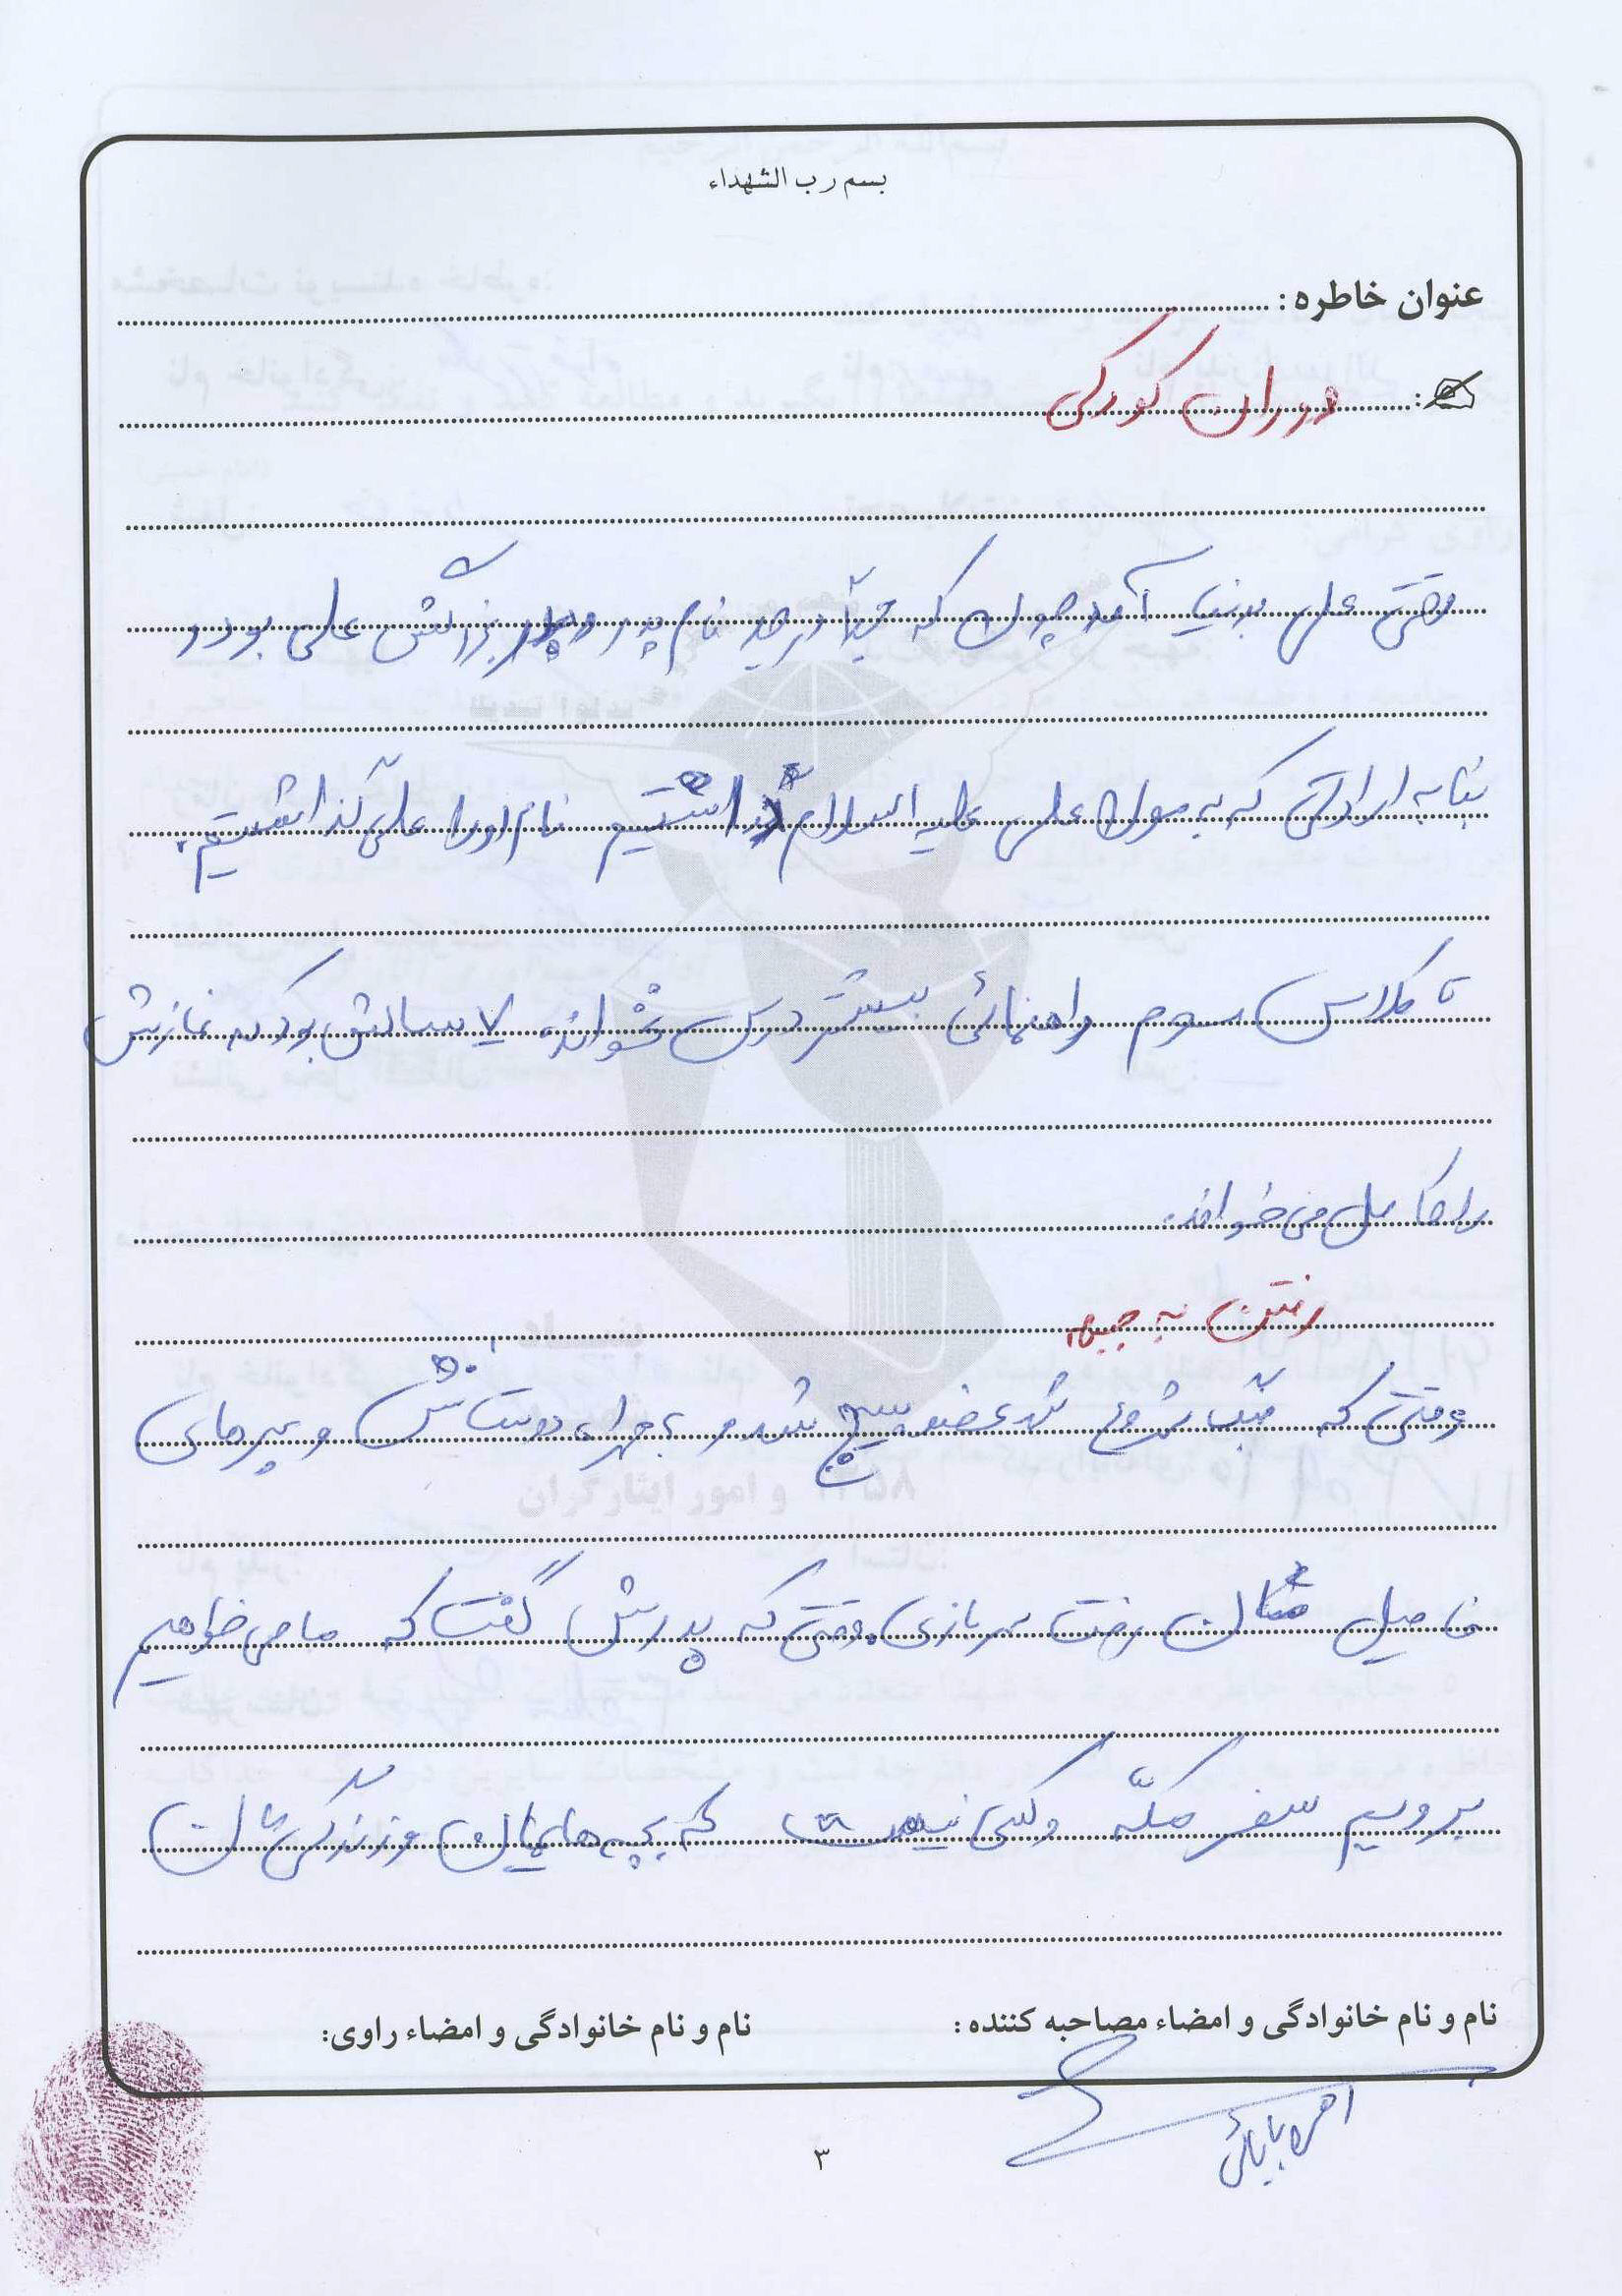 بسم رب الشهداء
عنوان خاطره :
دوران کودکی
وقتی علی بدنیا آمد چون که جدّ در جد نام پدر و پدر بزرگش علی بود و
بنا به ارادتی که به مولا علی علیه السلام داشتیم نام او را علی گذاشتیم.
تا کلاس سوم راهنمائی بیشتر درس نخواند. ۷ سالش بود که نمازش
را کامل می خواند.
رفتن به جبهه
وقتی که جنگ شروع شد عضو بسیج شد و به همراه دوستانش و پسرهای
فامیل رفت سربازی. وقتی که پدرش گفت که ما می خواهیم
برویم سفر مکّه و کسی نیست که بچه هایمان و زندگی مان
نام و نام خانوادگی و امضاء مصاحبه کننده :
نام و نام خانوادگی و امضاء راوی:
بابائی
۳